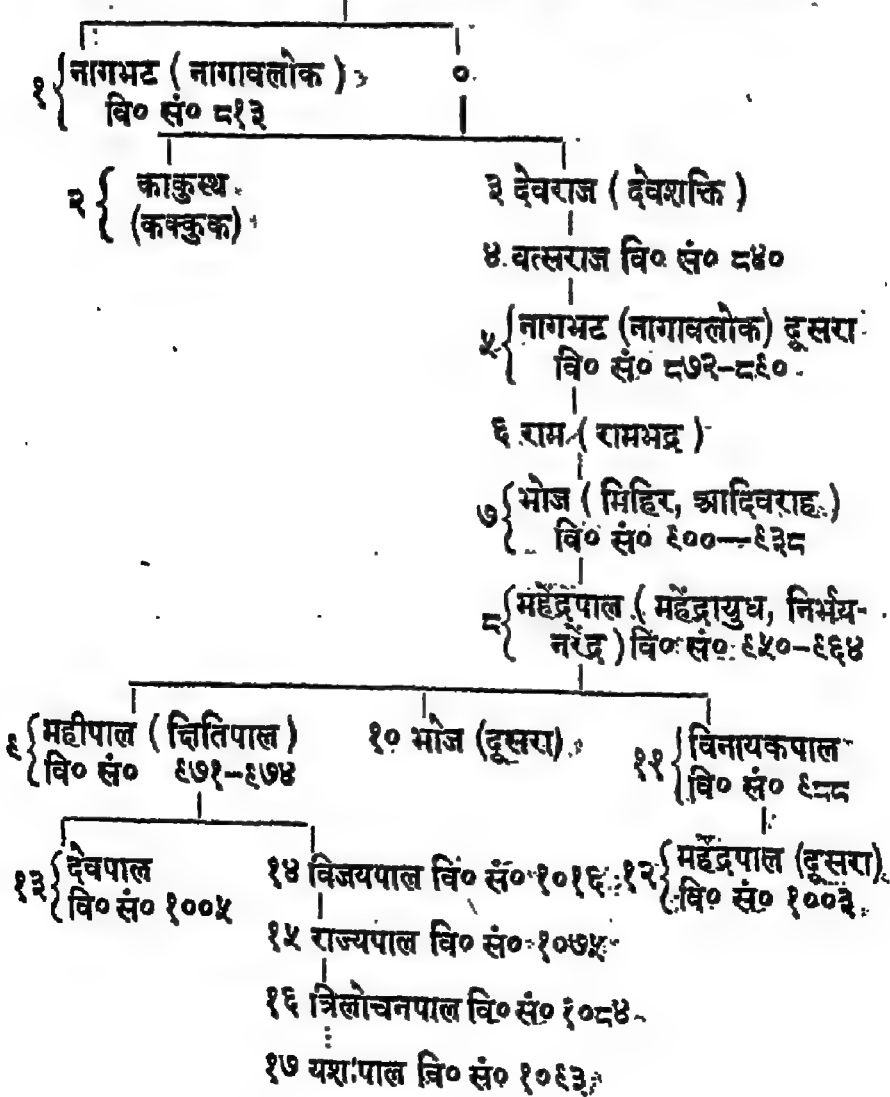 १ { नागभट ( नागावलोक ) ०
वि० सं० ८१३
२ { काकुस्थ
(कक्कुक)
३ देवराज ( देवशक्ति )
४ वत्सराज वि० सं० ८४०
५ { नागभट (नागावलोक) दूसरा
वि० सं० ८७२-८९०
६ राम ( रामभद्र )
७ { भोज ( मिहिर, आदिवराह )
वि० सं० ९००—९३८
८ { महेंद्रपाल ( महेंद्रायुध, निर्भय-
नरेंद्र ) वि० सं० ९५०-९६४
९ { महीपाल ( क्षितिपाल )
वि० सं० ९७१-९७४
१० भोज (दूसरा)
११ { विनायकपाल
वि० सं० ९८८
१२ { महेंद्रपाल (दूसरा)
वि० सं० १००३
१३ { देवपाल
वि० सं० १००५
१४ विजयपाल वि० सं० १०१६
१५ राज्यपाल वि० सं० १०७५
१६ त्रिलोचनपाल वि० सं० १०८४
१७ यशःपाल वि० सं० १०९३